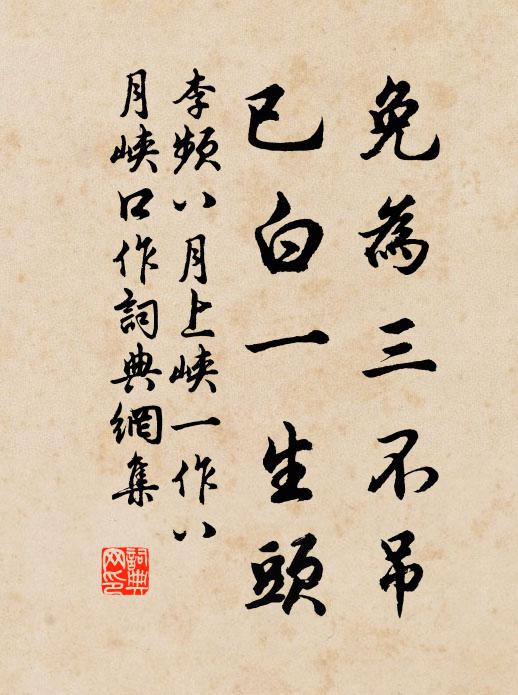 免為三不吊
已白一生頭
李頻八月上峽一作八
月峽口作詞典網集
詞典网印